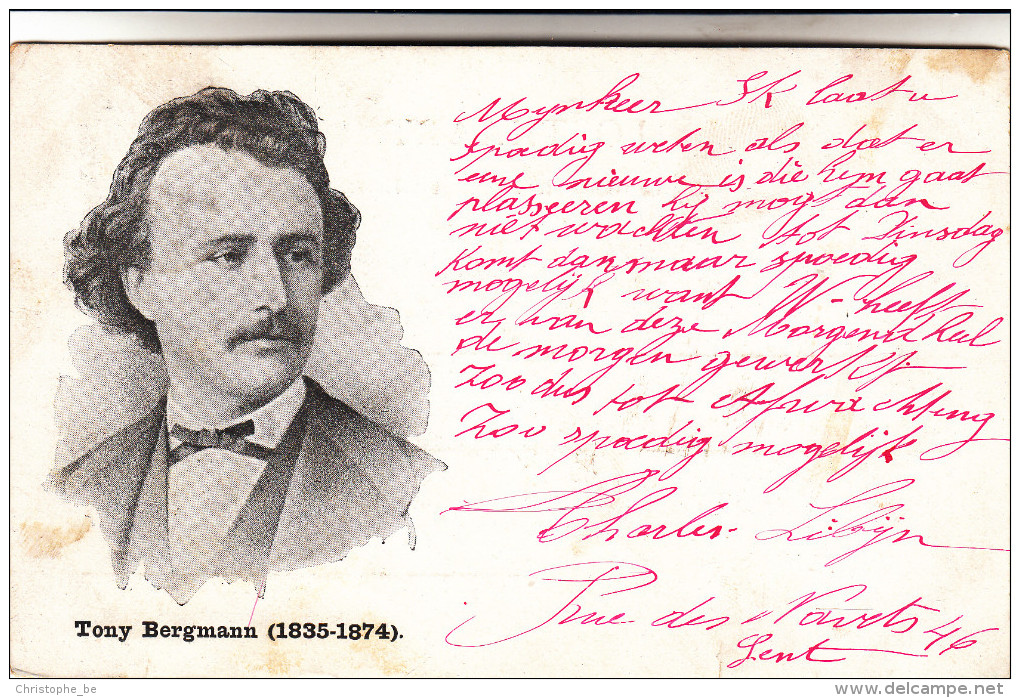 Mynheer Ik laat u
spoedig weten als dat er
eene nieuwe is die hem gaat
plasseeren hij mogt dan
niet wachten tot Dinsdag
Komt dan maar spoedig
mogelijk want W- heeft
er van deze Morgend heel
de morgen gewerkt
Zoo dus tot Afwachting
Zoo spoedig mogelijk
Charles Libijn
Rue des Navets 46
Gent
Tony Bergmann (1835-1874).
Christophe_be
www.delcampe.net